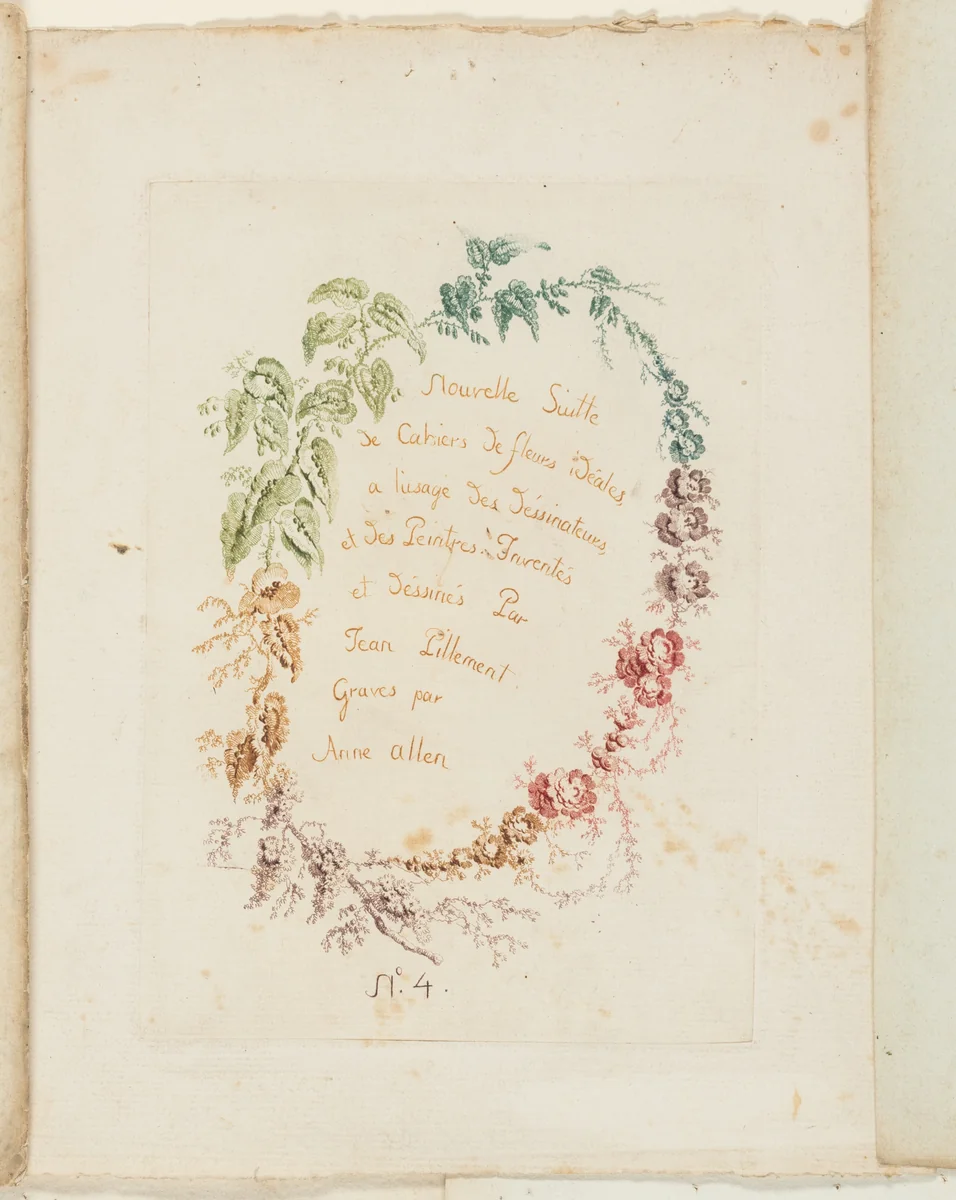 Nouvelle Suitte
de Cahiers de fleurs idéales,
a l'usage des Déssinateurs,
et des Peintres. Inventés
et Déssinés Par
Jean Pillement.
Graves par
Anne allen
N.º 4.